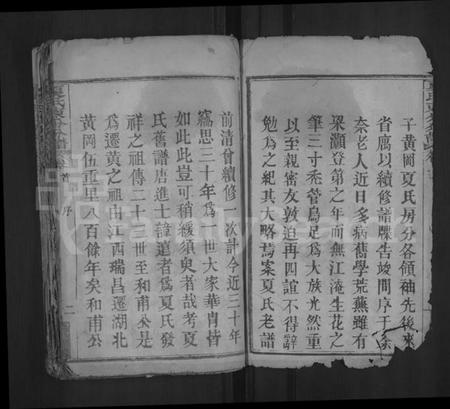 子黄岡夏氏房分各領袖先後來
省廣以續修譜牒告竣問序于余
奈老人近日多病舊學荒蕪雖有
梁灝登第之年而無江淹生花之
筆三寸禿管烏足為大族光然重
以至親密友敦迫再四誼不得辭
勉為之紀其大略焉案夏氏老譜
前清曾續修一次計今近三十年
竊思三十年為一世大家華胄皆
如此此豈可稍緩須臾者哉考夏
氏舊譜唐進士諱遠者為夏氏發
祥之祖傳二十世至和甫公是
為遷黄之祖由江西瑞昌遷湖北
黄岡伍重里八百餘年矣和甫公
首 序
二